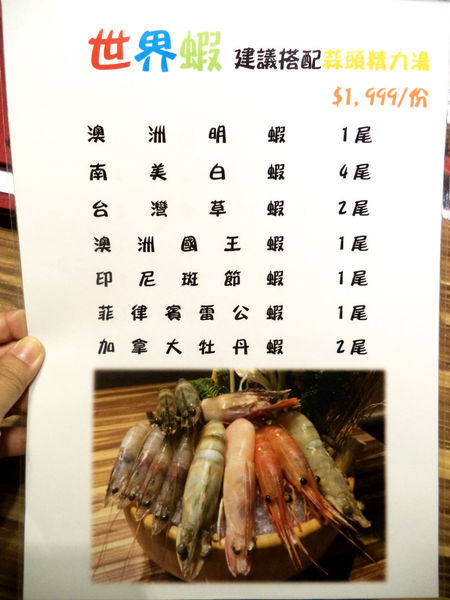 世界蝦 建議搭配蒜頭精力湯
$1,999/份
澳洲明蝦 1尾
南美白蝦 4尾
台灣草蝦 2尾
澳洲國王蝦 1尾
印尼斑節蝦 1尾
菲律賓雷公蝦 1尾
加拿大牡丹蝦 2尾